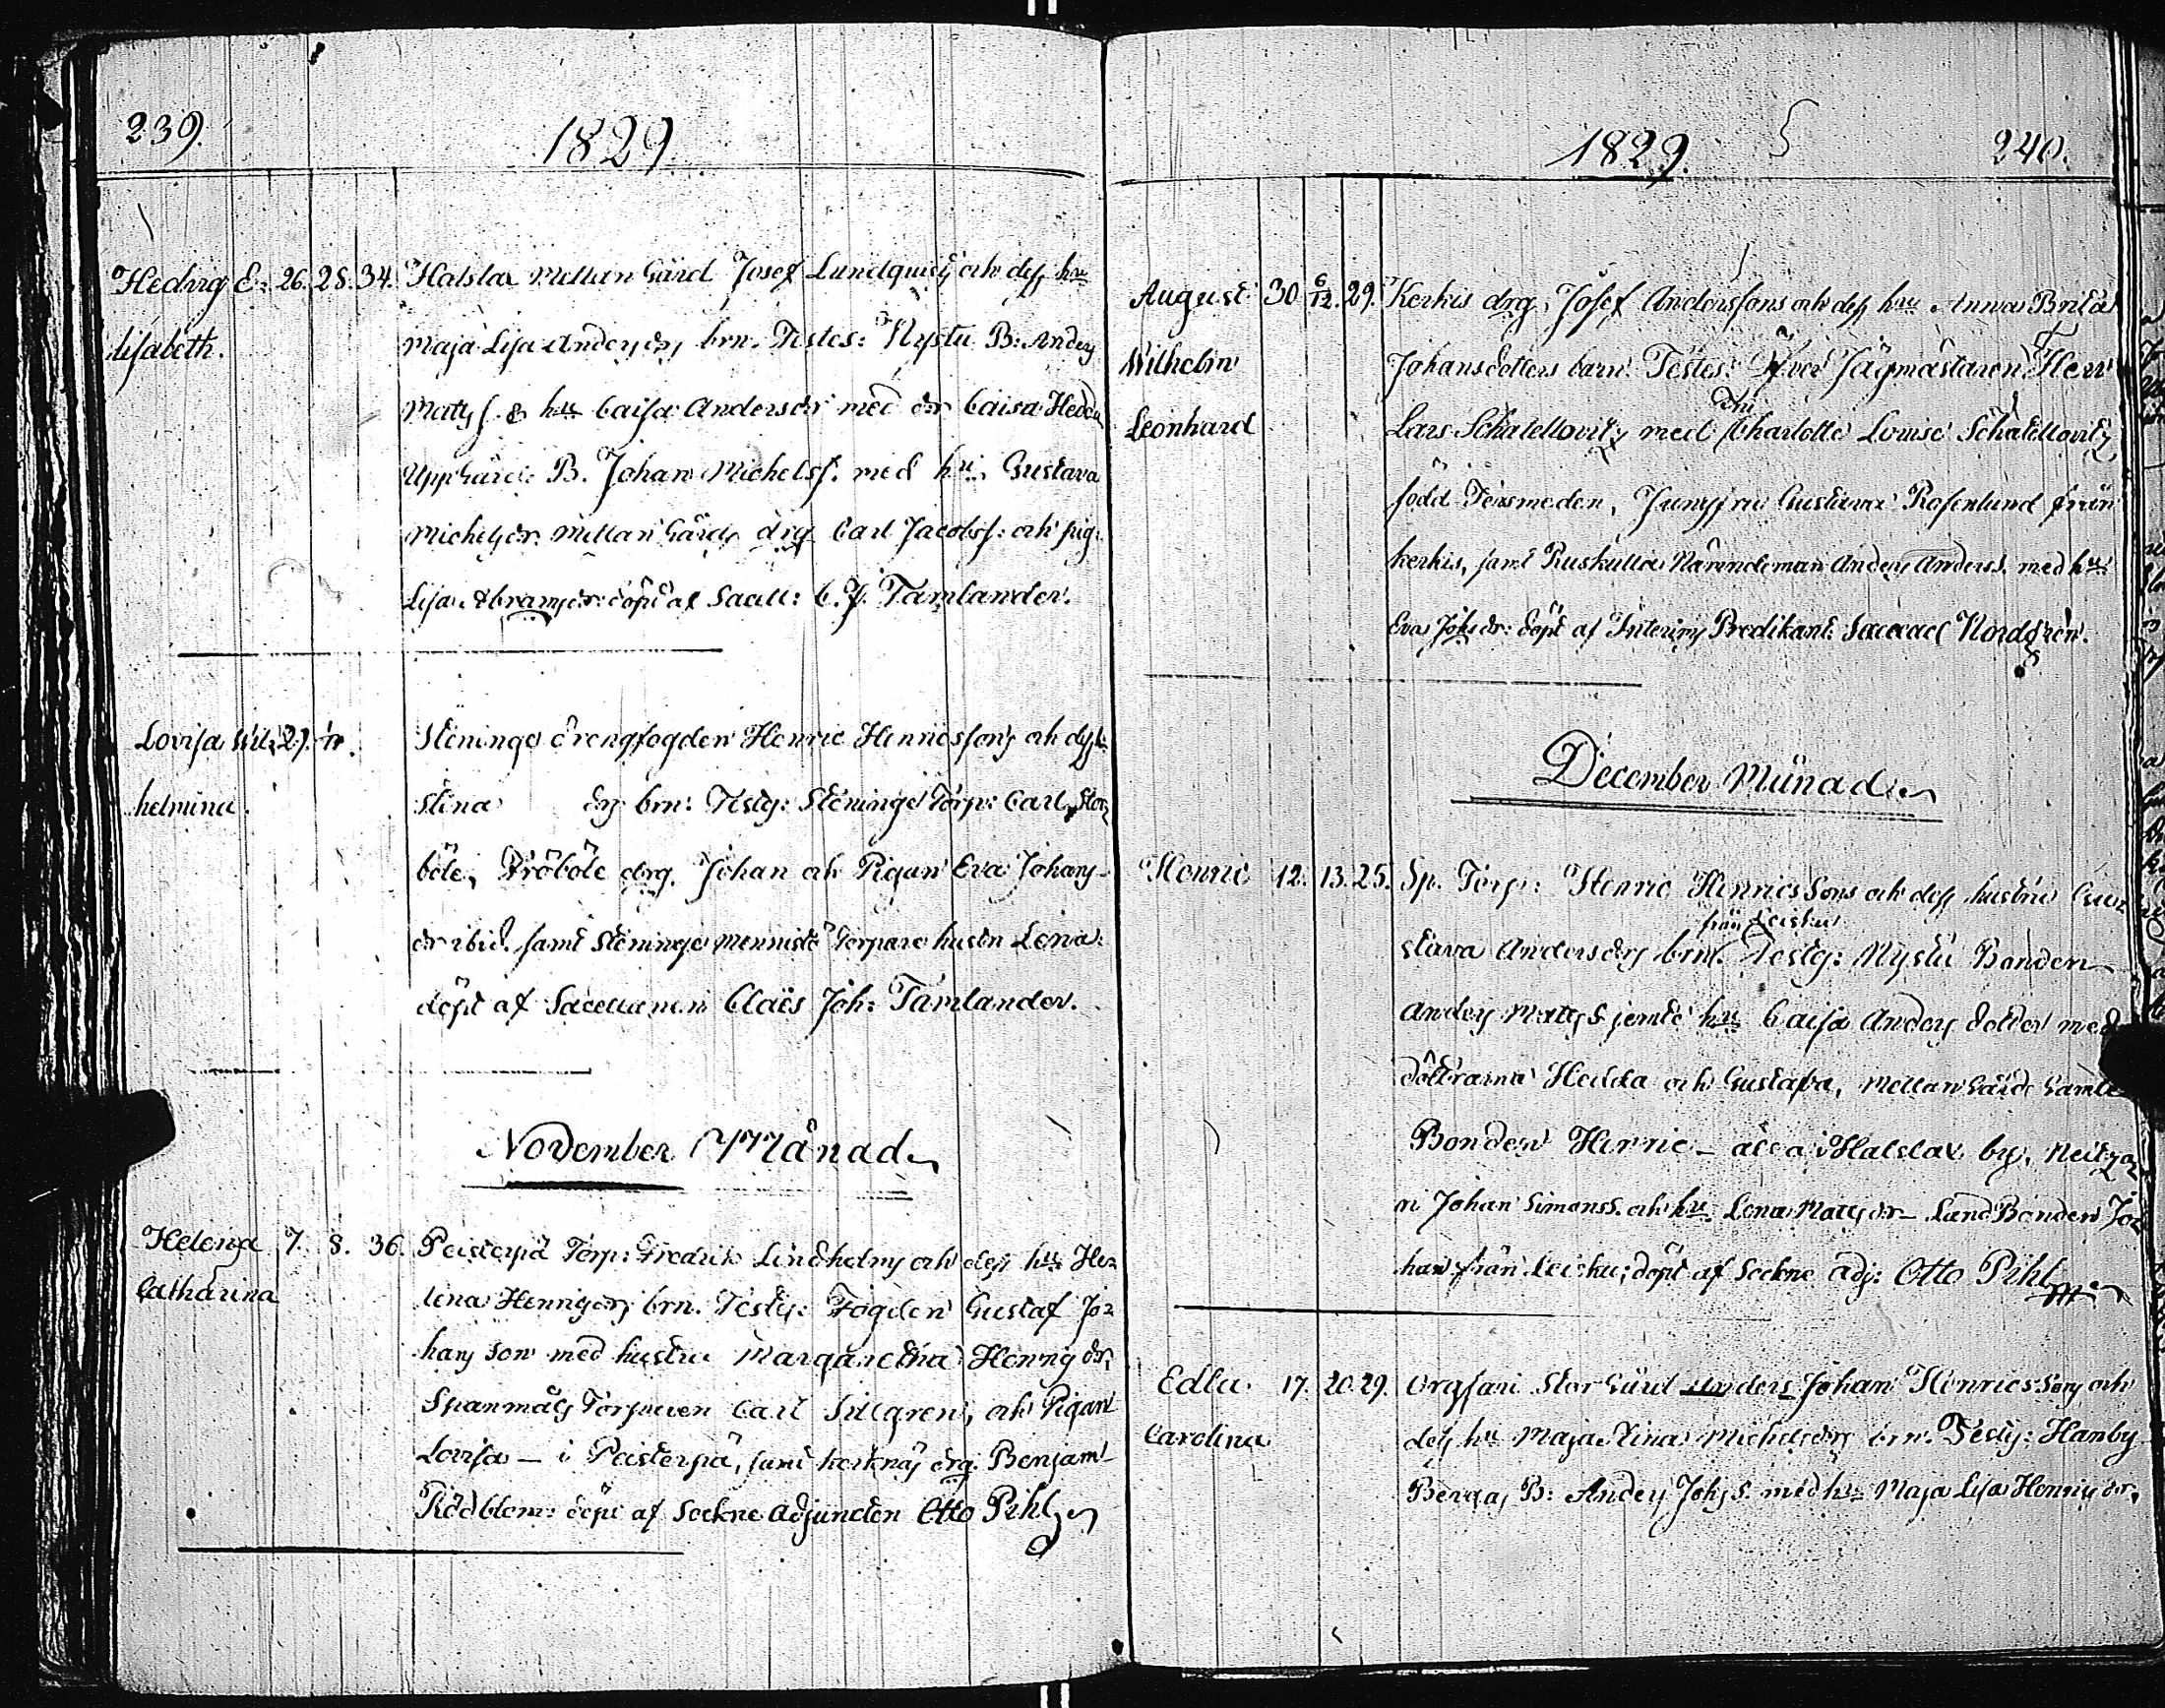 239.
1829.
Hedvig E= 26. 28. 34. Halsla Mellan Gård Josef Lundquists och dess hu
lisabeth. Maja Lisa Andersdrs brn. Testes: Nystu B: Anders
Matts S. & hu Caisa Andersdr med dr Caisa Hedda
UppGårds B. Johan Michelss. med hu. Gustava
Michelsdr. Mellan Gårds drg Carl Jacobss: och pig.
Lisa Abramsdr: döpt af Sacell: C. J. Tamlander.
Lovisa Wil= 29. Steninge drengfogden Henric Henricssons och dess
helmina. Stina drs brn: Testes: Steninge Torp: Carl, Stor
böle, Fröböle drg. Johan och Pigan Eva Johans-
dr ibid. samt Steninge Torpare hustn Lena:
döpt af Sacellanen Claës Joh: Tamlander.
November Månad
Helena 7. 8. 36. Peisterpä Torp: Fredrik Lindholms och dess hu He=
Catharina lena Henrigsdrs brn. Testes: Fogden Gustaf Jo=
hans son med hustru Margaretha Henrigsdr,
Spanmåls Torparen Carl Sillgren, och Pigan
Lovisa – i Peisterpä, samt kerknäs drg. Benjam-
Rödblom: döpt af Sockne Adjuncten Otto Pihl
1829.
240.
August 30 6/12. 29. Kerkis drg. Josef Anderssons och dess hu Anna Brita
Wilhelm Johansdotters barn. Testes: Öfver Jägmästaren Herr
Leonhard Lars Schatellovitz med Charlotte Louise Schatellovitz
född Tersmeden, Jungfru Gustava Rosenlund från
kerkis, samt Ruskulla Nämndeman Anders Anders S. med hu
Eva Johsdr: döpt af Interims Predikant: Nordgrén.
December Månad
Henric 12. 13. 25. Sp. Torp: Henric Henrics Sons och dess hustru Gu=
från Leisku
stava Andersdrs brn. Testes: Nystu Bonden
Anders Matts S jemte hu Caisa Anders dotter med
döttrarna Hedda och Gustafva, Mellan Gårds Gamle
Bonden Henric – alla i Halslax by,
Johan Simonss. och hu Lena Mattsdr – LandBonden Jo=
han från Leisku; döpt af Sockne Adj: Otto Pihl
Edla 17. 20. 29. Orgsari Stor Gård Anders Johan Henrics Sons och
Carolina dess hu Maja Stina Michelsdrs brn. Testes: Hanby
Berga, B: Anders Johs S. med hu Maja Lisa Henricsdr,